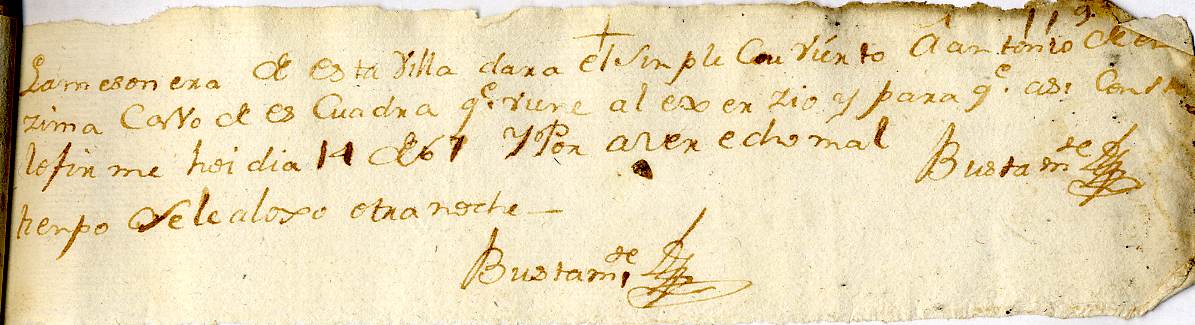 Lamesonera de esta Villa dara el Simple Cuvierto A antonio de en
zima Cavo de es Cuadra q.e viene al exerzio y para q.e asi Const
lo firme hoi dia 14 de 67 Y Por aver echo mal
tienpo se le aloxo otra noche —
Bustam.te
Bustam.te